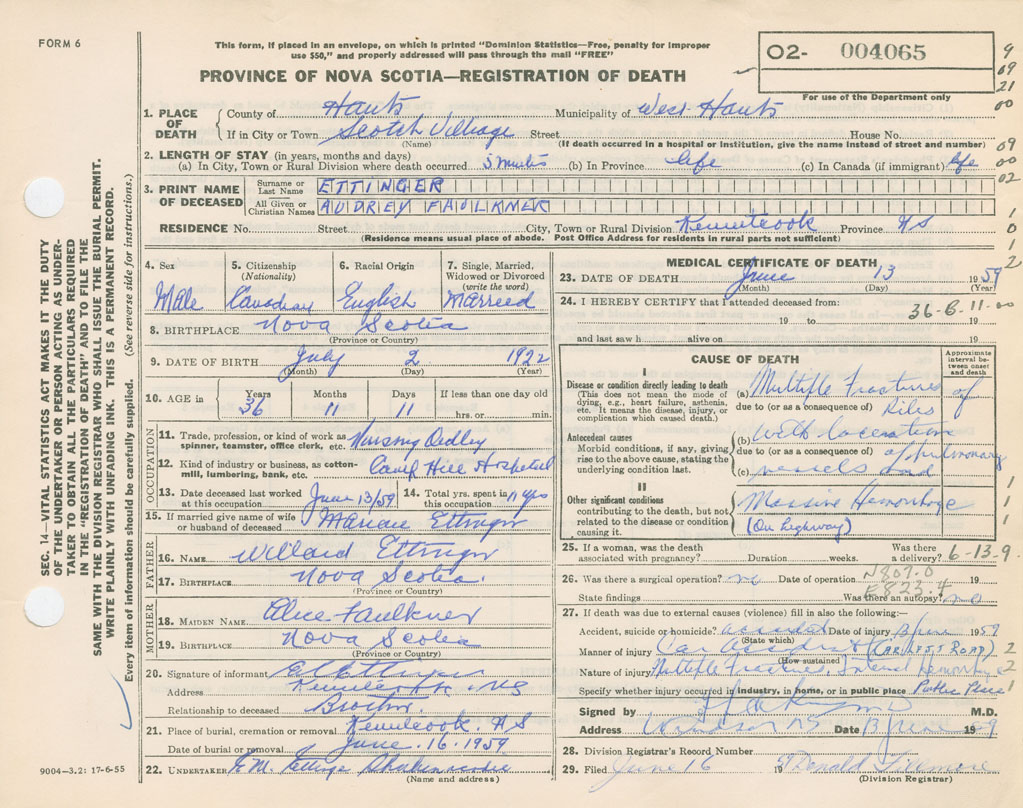 FORM 6
This form, if placed in an envelope, on which is printed "Dominion Statistics—Free, penalty for improper
use $50," and properly addressed will pass through the mail "FREE"
PROVINCE OF NOVA SCOTIA—REGISTRATION OF DEATH
02- 004065
For use of the Department only
9
09
21
00
09
00
02
1
0
1
2
SEC. 14—VITAL STATISTICS ACT MAKES IT THE DUTY
OF THE UNDERTAKER OR PERSON ACTING AS UNDER-
TAKER TO OBTAIN ALL THE PARTICULARS REQUIRED
IN THE "REGISTRATION OF DEATH" AND TO FILE THE
SAME WITH THE DIVISION REGISTRAR WHO SHALL ISSUE THE BURIAL PERMIT.
WRITE PLAINLY WITH UNFADING INK. THIS IS A PERMANENT RECORD.
Every item of information should be carefully supplied. (See reverse side for instructions.)
1. PLACE OF DEATH
County of Hants Municipality of West Hants
If in City or Town Scotch Village Street House No.
(Name) (If death occurred in a hospital or institution, give the name instead of street and number)
2. LENGTH OF STAY (in years, months and days)
(a) In City, Town or Rural Division where death occurred 5 (b) In Province life (c) In Canada (if immigrant) life
3. PRINT NAME OF DECEASED
Surname or Last Name ETTINGER
All Given or Christian Names AUDREY FAULKNER
RESIDENCE No. Street City, Town or Rural Division Kennetcook Province NS
(Residence means usual place of abode. Post Office Address for residents in rural parts not sufficient)
4. Sex Male
5. Citizenship (Nationality) Canadian
6. Racial Origin English
7. Single, Married, Widowed or Divorced (write the word) Married
8. BIRTHPLACE Nova Scotia
(Province or Country)
9. DATE OF BIRTH July 2 1922
(Month) (Day) (Year)
10. AGE in Years 36 Months 11 Days 11 If less than one day old hrs. or min.
OCCUPATION
11. Trade, profession, or kind of work as spinner, teamster, office clerk, etc. Nursing Orderly
12. Kind of industry or business, as cotton-mill, lumbering, bank, etc. Camp Hill Hospital
13. Date deceased last worked at this occupation June 13/59
14. Total yrs. spent in this occupation 11 yrs
15. If married give name of wife or husband of deceased Ettinger
FATHER
16. NAME Willard Ettinger
17. BIRTHPLACE Nova Scotia
(Province or Country)
MOTHER
18. MAIDEN NAME Alice Faulkner
19. BIRTHPLACE Nova Scotia
(Province or Country)
20. Signature of informant Ettinger
Address Kennetcook NS
Relationship to deceased Brother
21. Place of burial, cremation or removal Kennetcook NS
Date of burial or removal June 16 1959
22. UNDERTAKER Ettinger Shubenacadie
(Name and address)
9004—3.2: 17-6-55
MEDICAL CERTIFICATE OF DEATH
23. DATE OF DEATH June 13 1959
(Month) (Day) (Year)
24. I HEREBY CERTIFY that I attended deceased from:
36-6-11-00
19 to 19
and last saw h alive on 19
CAUSE OF DEATH
Approximate interval between onset and death
I
Disease or condition directly leading to death
(This does not mean the mode of dying, e.g., heart failure, asthenia, etc. It means the disease, injury, or complication which caused death.)
(a) Multiple Fractures of
due to (or as a consequence of) Ribs
Antecedent causes
Morbid conditions, if any, giving rise to the above cause, stating the underlying condition last.
(b) with laceration
due to (or as a consequence of) of pulmonary
(c) vessels and
II
Other significant conditions
contributing to the death, but not related to the disease or condition causing it.
Massive Hemorrhage
(On highway)
1
1
1
25. If a woman, was the death associated with pregnancy? Duration weeks. Was there a delivery?
6-13-9
26. Was there a surgical operation? no Date of operation 19
N807.0
E823.4
State findings Was there an autopsy? no
27. If death was due to external causes (violence) fill in also the following:—
Accident, suicide or homicide? accident Date of injury 13 June 1959
(State which)
Manner of injury Car Accident (CAR LEFT ROAD) 2
(How sustained)
Nature of injury Multiple Fractures, Internal hemorrhage 2
Specify whether injury occurred in industry, in home, or in public place Public Place 1
Signed by M.D.
Address Windsor NS Date 13 June 1959
28. Division Registrar's Record Number
29. Filed June 16 19 Donald Fillmore
(Division Registrar)